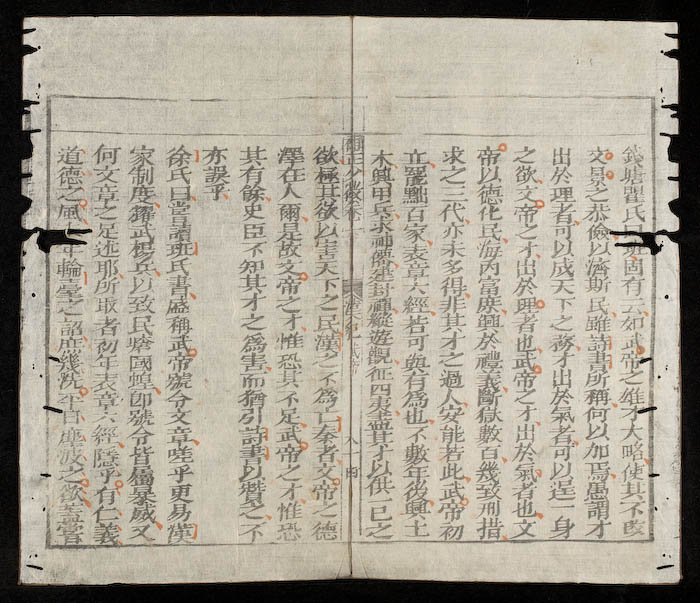 錢塘瞿氏曰班固有云如武帝之雄才大略使其不改
文景之恭儉以濟斯民雖詩書所稱何以加焉愚謂才
出於理者可以成天下之務才出於氣者可以逞一身
之欲文帝之才出於理者也武帝之才出於氣者也文
帝以德化民海內富庶興於禮義斷獄數百幾致刑措
求之三代亦未多得非其才之過人安能若此武帝初
立罷黜百家表章六經若可與有爲也不數年後興土
木興甲兵求神僊建封禪縱遊觀征四夷盡其才以供一已之
欲極其欲以害天下之民漢之不爲亡秦者文帝之德
澤在人爾是故文帝之才惟恐其不足武帝之才惟恐
其有餘史臣不知其才之爲害而猶引詩書以贊之不
亦誤乎
徐氏曰嘗讀班氏書盛稱武帝號令文章嗟乎更易漢
家制度鑄武楊兵以致民瘠國煌卽號令皆屬暴威又
何文章之足述耶所取者初年表章六經隱乎有仁義
道德之風年輪臺之詔庶幾